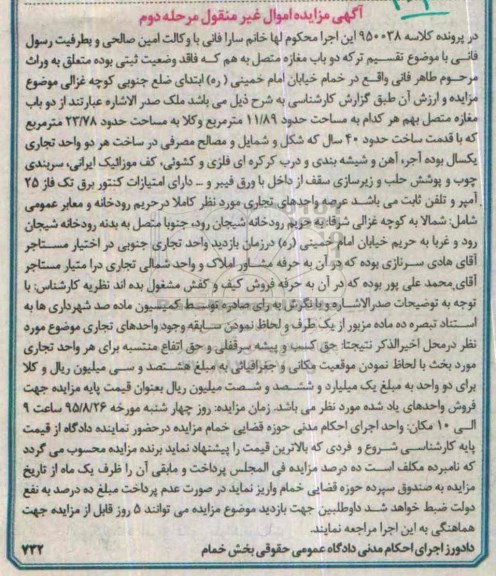 آگهی مزایده اموال غیر منقول مرحله دوم
در پرونده کلاسه ۹۵۰۰۳۸ این اجرا محکوم لها خانم سارا فانی با وکالت امین صالحی و بطرفیت رسول
فانی با موضوع تقسیم ترکه دو باب مغازه متصل به هم که فاقد وضعیت ثبتی بوده متعلق به وراث
مرحوم طاهر فانی واقع در خمام خیابان امام خمینی (ره) ابتدای ضلع جنوبی کوچه غزالی موضوع
مزایده و ارزش آن طبق گزارش کارشناسی به شرح ذیل می باشد ملک صدر الاشاره عبارتند از دو باب
مغازه متصل بهم هر کدام به مساحت حدود ۱۱/۸۹ مترمربع وکلا به مساحت حدود ۲۳/۷۸ مترمربع
که با قدمت ساخت حدود ۴۰ سال که شکل و شمایل و مصالح مصرفی در ساخت هر دو واحد تجاری
یکسال بوده آجر، آهن و شیشه بندی و درب کرکره ای فلزی و کشوئی، کف موزائیک ایرانی، سربندی
چوب و پوشش حلب و زیرسازی سقف از داخل با ورق فیبر و – دارای امتیازات کنتور برق تک فاز ۲۵
آمپر و تلفن ثابت می باشد عرصه واحدهای تجاری مورد نظر کاملا در حریم رودخانه و معابر عمومی
شامل: شمالا به کوچه غزالی شرقا: به حریم رودخانه شیجان رود، جنوبا متصل به بدنه رودخانه شیجان
رود و غربا به حریم خیابان امام خمینی (ره) درزمان بازدید واحد تجاری جنوبی در اختیار مستاجر
آقای هادی سرنازی بوده که در آن به حرفه مشاور املاک و واحد شمالی تجاری درا متیار مستاجر
آقای محمد علی پور بوده که در آن به حرفه فروش کیف و کفش مشغول بده اند نظریه کارشناس: با
توجه به توضیحات صدرالاشاره و با نگرش به رای صادره توسط کمیسیون ماده صد شهرداری ها به
استناد تبصره ده ماده مزبور از یک طرف و لحاظ نمودن سابقه وجود واحدهای تجاری موضوع مورد
نظر درمحل اخیرالذکر نتیجتا: حق کسب و پیشه سرقفلی و حق انتفاع منتسبه برای هر واحد تجاری
مورد بخث با لحاظ نمودن موقعیت مکانی و جغرافیائی به مبلغ هشتصد و سی میلیون ریال و کلا
برای دو واحد به مبلغ یک میلیارد و ششصد و شصت میلیون ریال بعنوان قیمت پایه مزایده جهت
فروش واحدهای یاد شده مورد نظر می باشد. زمان مزایده: روز چهار شنبه مورخه ۹۵/۸/۲۶ ساعت ۹
الی ۱۰ مکان: واحد اجرای احکام مدنی حوزه قضایی خمام مزایده درحضور نماینده دادگاه از قیمت
پایه کارشناسی شروع و فردی که بالاترین قیمت را پیشنهاد نماید برنده مزایده محسوب می گردد
که نامبرده مکلف است ده درصد مزایده فی المجلس پرداخت و مابقی آن را ظرف یک ماه از تاریخ
مزایده به صندوق سپرده حوزه قضایی خمام واریز نماید در صورت عدم پرداخت مبلغ ده درصد به نفع
دولت ضبط خواهد شد داوطلبین جهت بازدید موضوع مزایده می توانند ۵ روز قابل از مزایده جهت
هماهنگی به این اجرا مراجعه نمایند.
دادورز اجرای احکام مدنی دادگاه عمومی حقوقی بخش خمام ۷۳۲